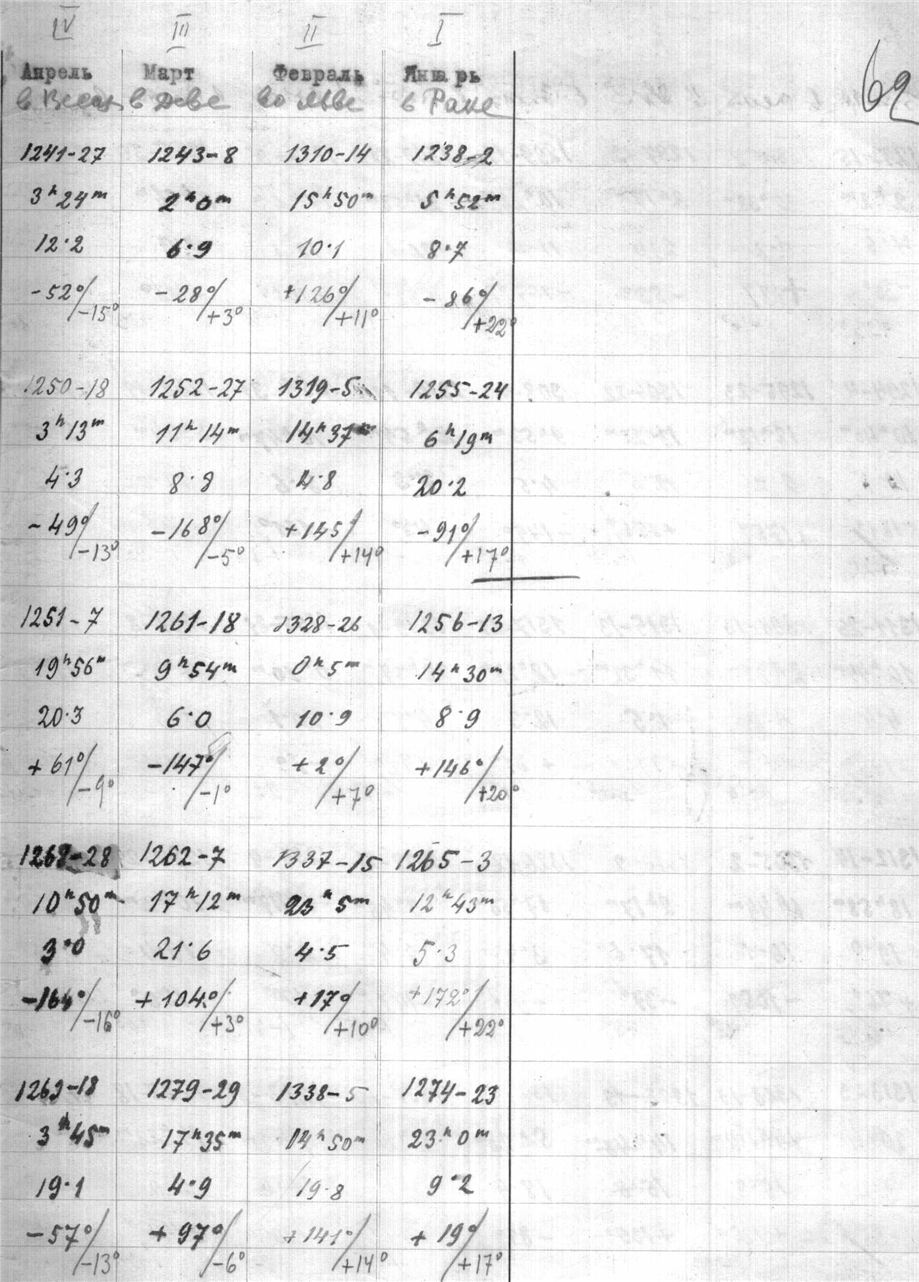 IV III II I
Апрель Март Февраль Январь 62
в Весах в Деве во Льве в Раке
1241-27 1243-8 1310-14 1238-2
3ʰ24ᵐ 2ʰ0ᵐ 15ʰ50ᵐ 5ʰ52ᵐ
12·2 6·9 10·1 8·7
-52°/-15° -28°/+3° +126°/+11° -86°/+22°
1250-18 1252-27 1319-5 1255-24
3ʰ13ᵐ 11ʰ14ᵐ 14ʰ37ᵐ 6ʰ19ᵐ
4·3 8·8 4·8 20·2
-49°/-13° -168°/-5° +145°/+14° -91°/+17°
1251-7 1261-18 1328-26 1256-13
19ʰ56ᵐ 9ʰ54ᵐ 0ʰ5ᵐ 14ʰ30ᵐ
20·3 6·0 10·9 8·9
+61°/-9° -147°/-1° +2°/+7° +146°/+20°
1268-28 1262-7 1337-15 1265-3
10ʰ50ᵐ 17ʰ12ᵐ 23ʰ5ᵐ 12ʰ43ᵐ
3·0 21·6 4·5 5·3
-164°/-16° +104°/+3° +17°/+10° +172°/+22°
1269-18 1279-29 1338-5 1274-23
3ʰ45ᵐ 17ʰ35ᵐ 14ʰ50ᵐ 23ʰ0ᵐ
19·1 4·9 19·8 9·2
-57°/-13° +97°/-6° +141°/+14° +19°/+17°